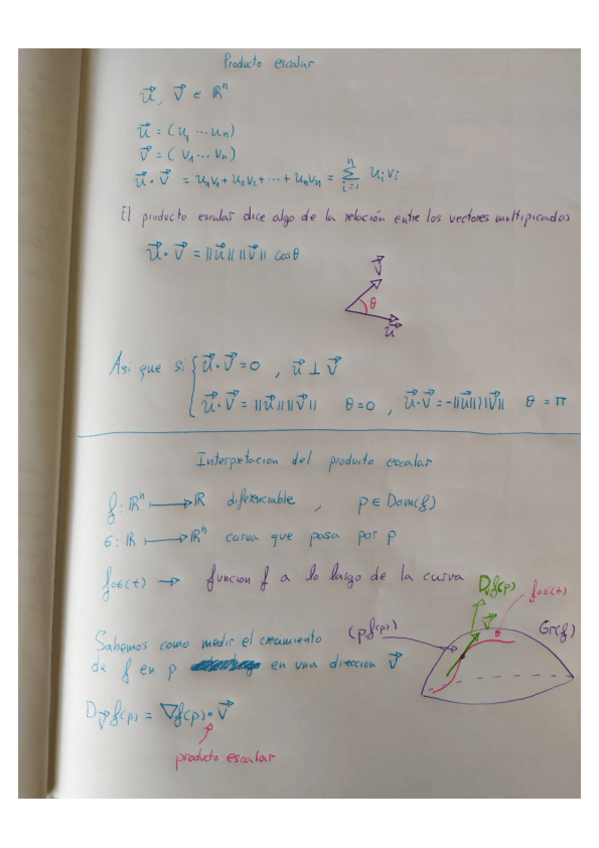 Producto escalar
u⃗, v⃗ ∈ ℝⁿ
u⃗ = (u₁ ... uₙ)
v⃗ = (v₁ ... vₙ)
u⃗ · v⃗ = u₁v₁ + u₂v₂ + ... + uₙvₙ = ∑ᵢ₌₁ⁿ uᵢvᵢ
El producto escalar dice algo de la relación entre los vectores multipicados
u⃗ · v⃗ = ||u⃗|| ||v⃗|| cosθ
v⃗
θ
u⃗
Asi que si { u⃗ · v⃗ = 0 , u⃗ ⊥ v⃗
u⃗ · v⃗ = ||u⃗|| ||v⃗|| θ = 0 , u⃗ · v⃗ = -||u⃗|| ||v⃗|| θ = π
Interpretacion del producto escalar
f: ℝⁿ ⟼ ℝ diferenciable , p ∈ Dom(f)
σ: ℝ ⟼ ℝⁿ curva que pasa por p
f∘σ(t) → funcion f a lo largo de la curva
D_v f(p)
f∘σ(t)
v⃗
Gr(f)
(p, f(p))
Sabemos como medir el crecimiento
de f en p en una direccion v⃗
D_v⃗ f(p) = ∇f(p) · v⃗
producto escalar